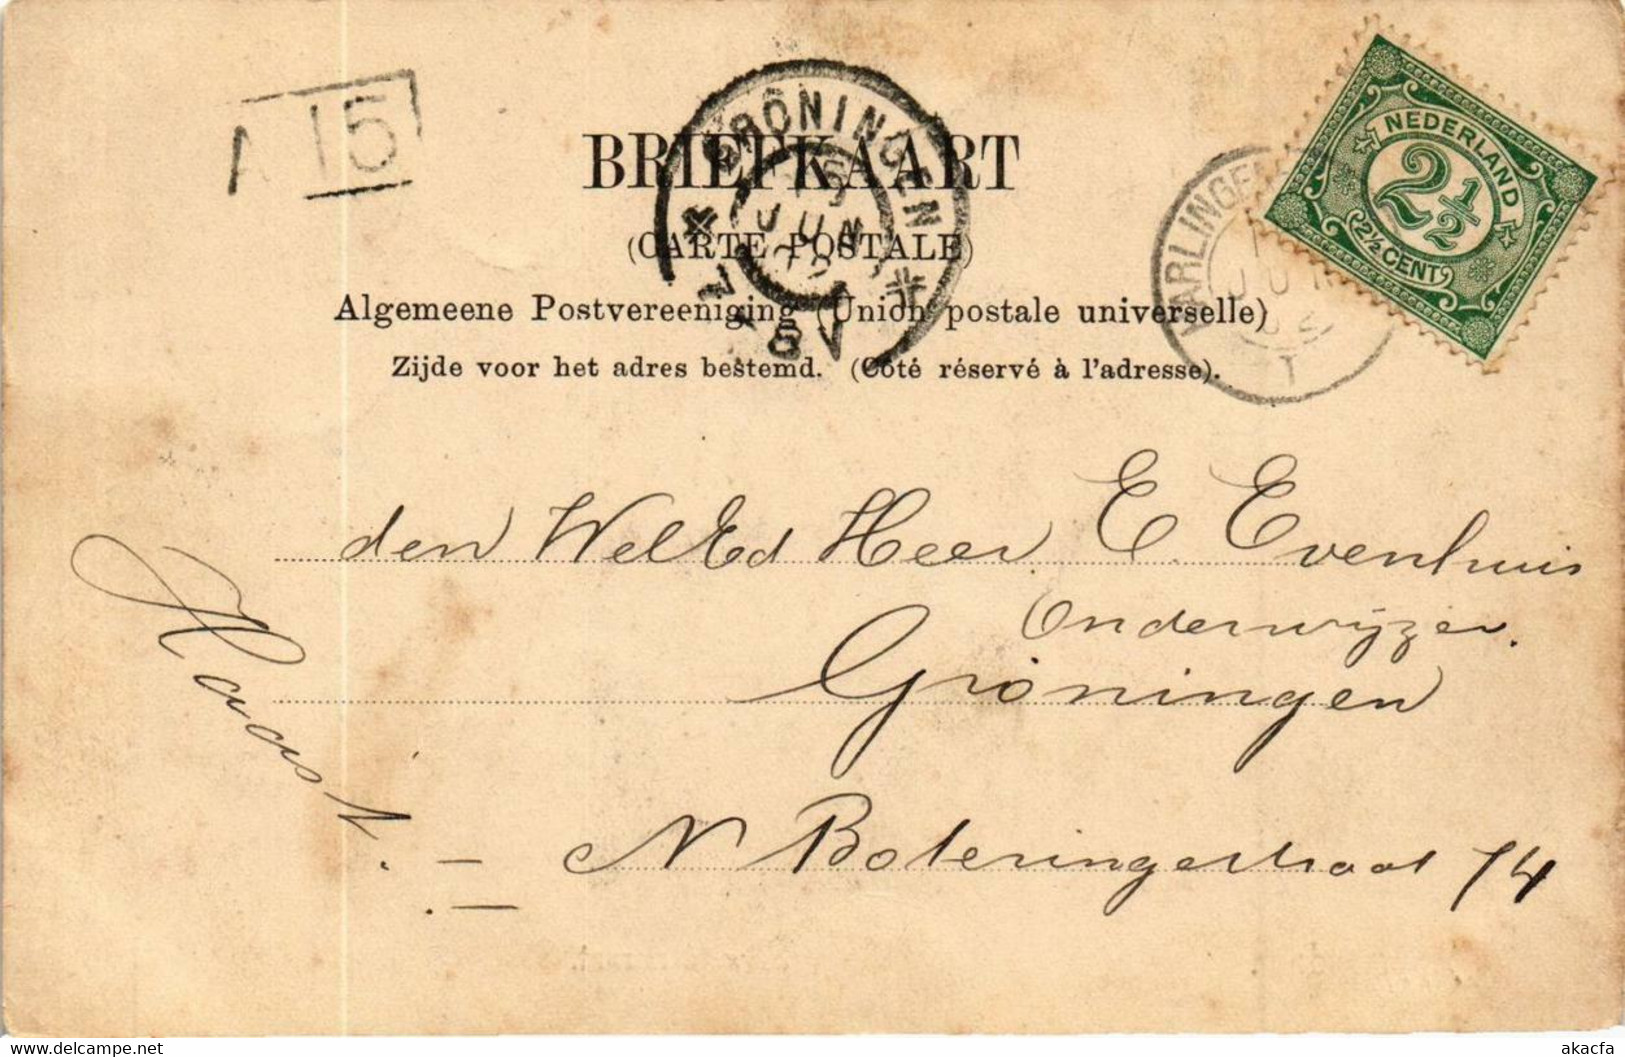 A 15
BRIEFKAART
(CARTE POSTALE)
Algemeene Postvereeniging (Union postale universelle)
Zijde voor het adres bestemd. (Côté réservé à l'adresse).
GRONINGEN
15
JUN
8V
HARLINGEN
JUN
NEDERLAND
2½
2½ CENT
den WelEd Heer E. Evenhuis
Onderwijzer.
Groningen
N Boteringestraat 14
Haast.
akacfa